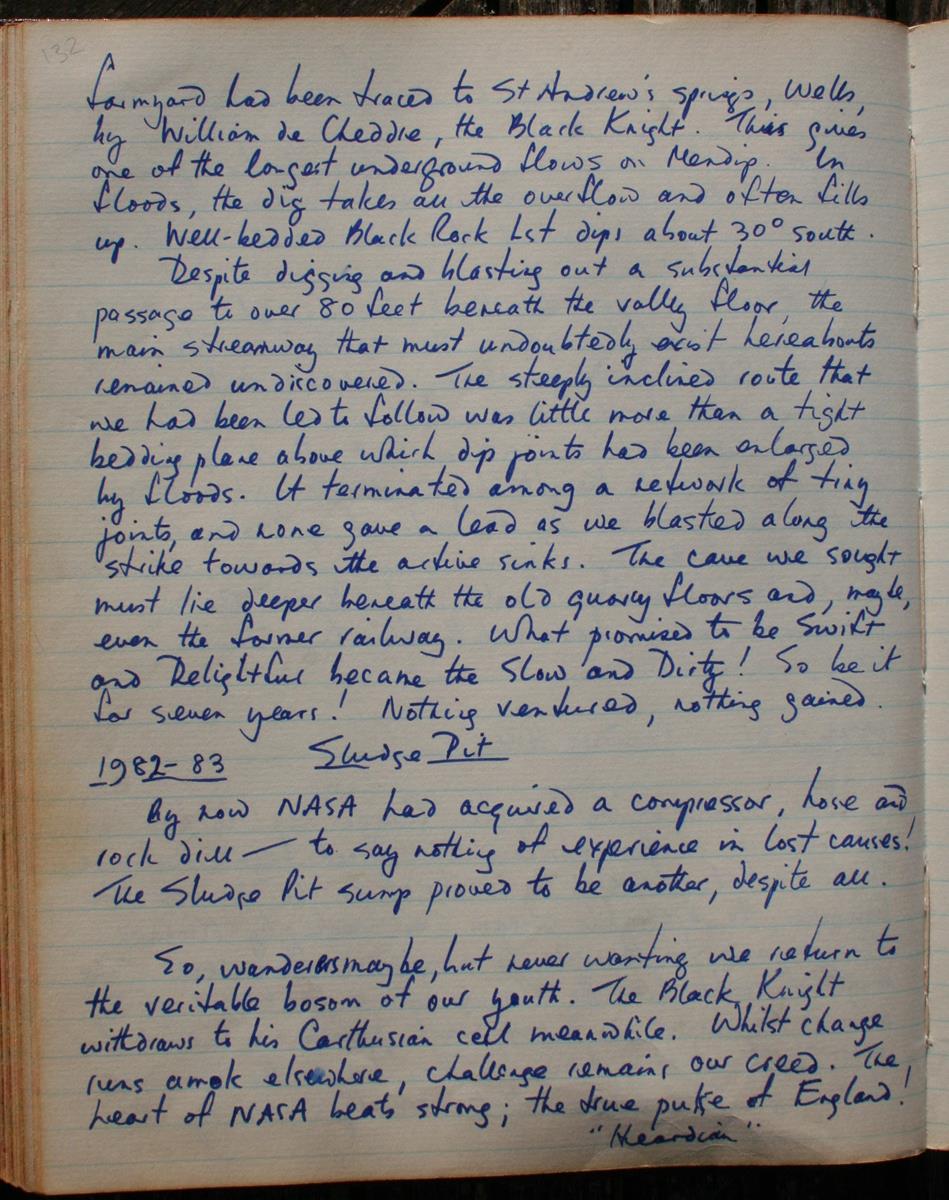 132
farmyard had been traced to St Andrew's springs, Wells,
by William de Cheddre, the Black Knight. This gives
one of the longest underground flows on Mendip. In
floods, the dig takes all the overflow and often fills
up. Well-bedded Black Rock Lst dips about 30° south.
Despite digging and blasting out a substantial
passage to over 80 feet beneath the vally floor, the
main streamway that must undoubtedly exist hereabouts
remained undiscovered. The steeply inclined route that
we had been led to follow was little more than a tight
bedding plane above which dip joints had been enlarged
by floods. It terminated among a network of tiny
joints, and none gave a lead as we blasted along the
strike towards the active sinks. The cave we sought
must lie deeper beneath the old quarry floors and, maybe,
even the former railway. What promised to be Swift
and Delightful became the Slow and Dirty! So be it
for seven years! Nothing ventured, nothing gained.
1982-83 Sludge Pit
By now NASA had acquired a compressor, hose and
rock drill — to say nothing of experience in lost causes!
The Sludge Pit sump proved to be another, despite all.
So, wanderers maybe, but never wanting we return to
the veritable bosom of our youth. The Black Knight
withdraws to his Carthusian cell meanwhile. Whilst change
runs amok elsewhere, challenge remains our creed. The
heart of NASA beats strong; the true pulse of England!
"Heardian"